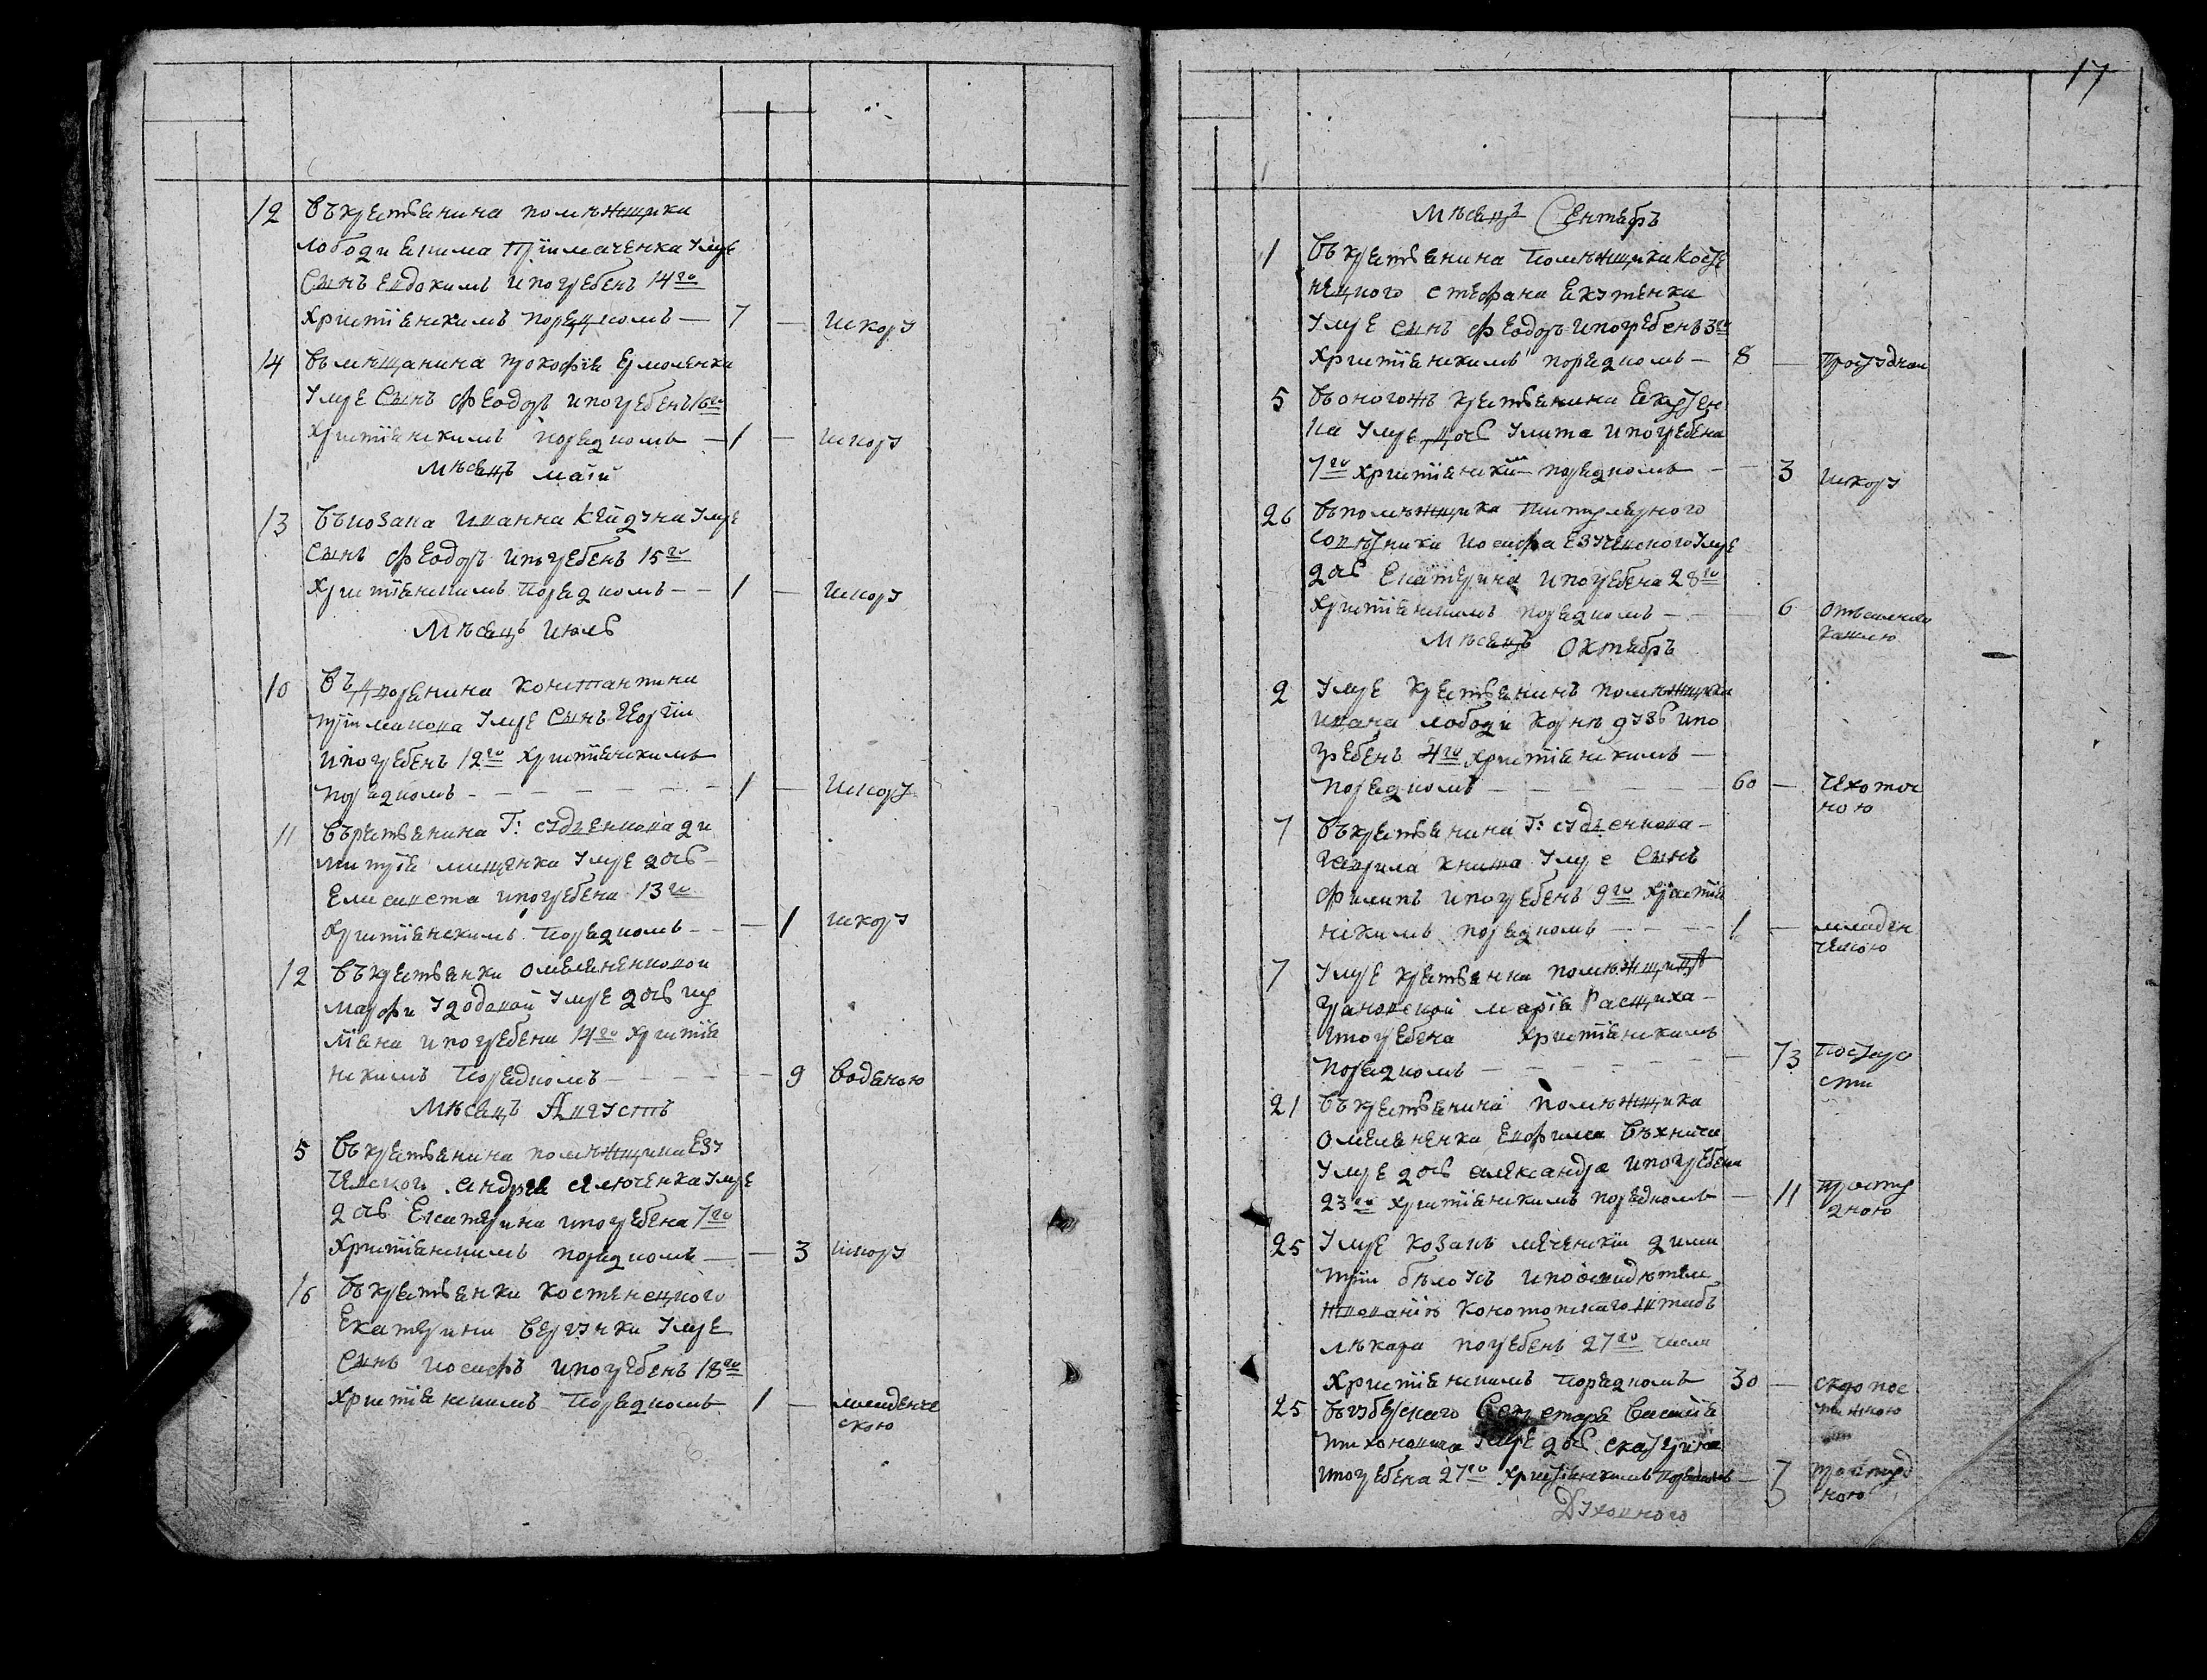 12 Въ крестьянина помѣжщика
Лободи Якима Пріймаченка умре
Сынъ Евдокимъ и погребенъ 14го
христіянскимъ порядкомъ — 7 — шкору
14 Въ мѣщанина Прокофія Ермоленка
умре Сынъ Феодоръ и погребенъ 16го
христіянскимъ порядкомъ — 1 — шкору
Мѣсяцъ маій
13 Въ козака Ивана умре
Сынъ Феодоръ и погребенъ 15го
христіянскимъ порядкомъ - - 1 — шкору
Мѣсяцъ июль
10 Въ дворянина Константина
Пріймакова умре Сынъ Георгій
и погребенъ 12го христіянскимъ
порядкомъ - - - - - - 1 — шкору
11 Въ крестьянина Г: Судіенкова Ди
митрія Мищенка умре дочь
Елисавета и погребена 13го
христіянскимъ порядкомъ - - — 1 шкору
12 Въ крестьянки Омеляненковой
Марфи Удодовой умре дочь
и погребена 14го христія
нскимъ порядкомъ — — 9 водяною
Мѣсяцъ Августъ
5 Въ крестьянина помѣжщика Езу
чевского Андрея умре
дочь Екатерина и погребена 7го
христіянскимъ порядкомъ — — 3 шкору
16 Въ крестьянки Костенецкого
Екатерини умре
Сынъ Иосифъ и погребенъ 18го
христіянскимъ порядкомъ 1 — младенче
скою
17
Мѣсяцъ Сентябръ
1 Въ крестьянина помѣжщика Косте
нецкого Стефана Якутенка
умре сынъ Феодоръ и погребенъ 3го
христіянскимъ порядкомъ — 8 — простудною
5 В оногожъ крестьянина
умре дочь Улита и погребена
7го христіянскимъ порядкомъ - — 3 шкору
26 Въ помѣжщика титулярного
совѣтника Иосифа Езучевского умре
дочь Екатерина и погребена 28го
христіянскимъ порядкомъ — 6
кашлю
Мѣсяцъ Октябръ
2 умре крестьянинъ помѣжщика
Ивана Лободи и по
гребенъ 4го христіянскимъ —
порядкомъ — — — — 60 — чехоточ
ною
7 Въ крестьянина Г: Судіенкова —
Гаврила Книша умре Сынъ
Филипъ и погребенъ 9го христія
нскимъ порядкомъ — — — 1 — младен
ческою
7 умре крестьянка помѣжщици
Марія
и погребена христіянскимъ
порядкомъ — — — — 73 по старо
сти
21 Въ крестьянина помѣжщика
Омеляненка Евфима
умре дочь Александра и погребена
23го христіянскимъ порядкомъ — 11 просту
дною
25 умре козакъ Дими
трій Бѣлоусъ и по освидѣтел
жвованію Конотопского штабъ
лѣкара погребенъ 27го числа
христіянскимъ порядкомъ 30 — скоропос
тижною
25 Въ губернскаго Секретара Василія
Тихоновича умре дочь Екатерина
и погребена 27го христіянскимъ порядкомъ — 7 простуд
ною
Духовного